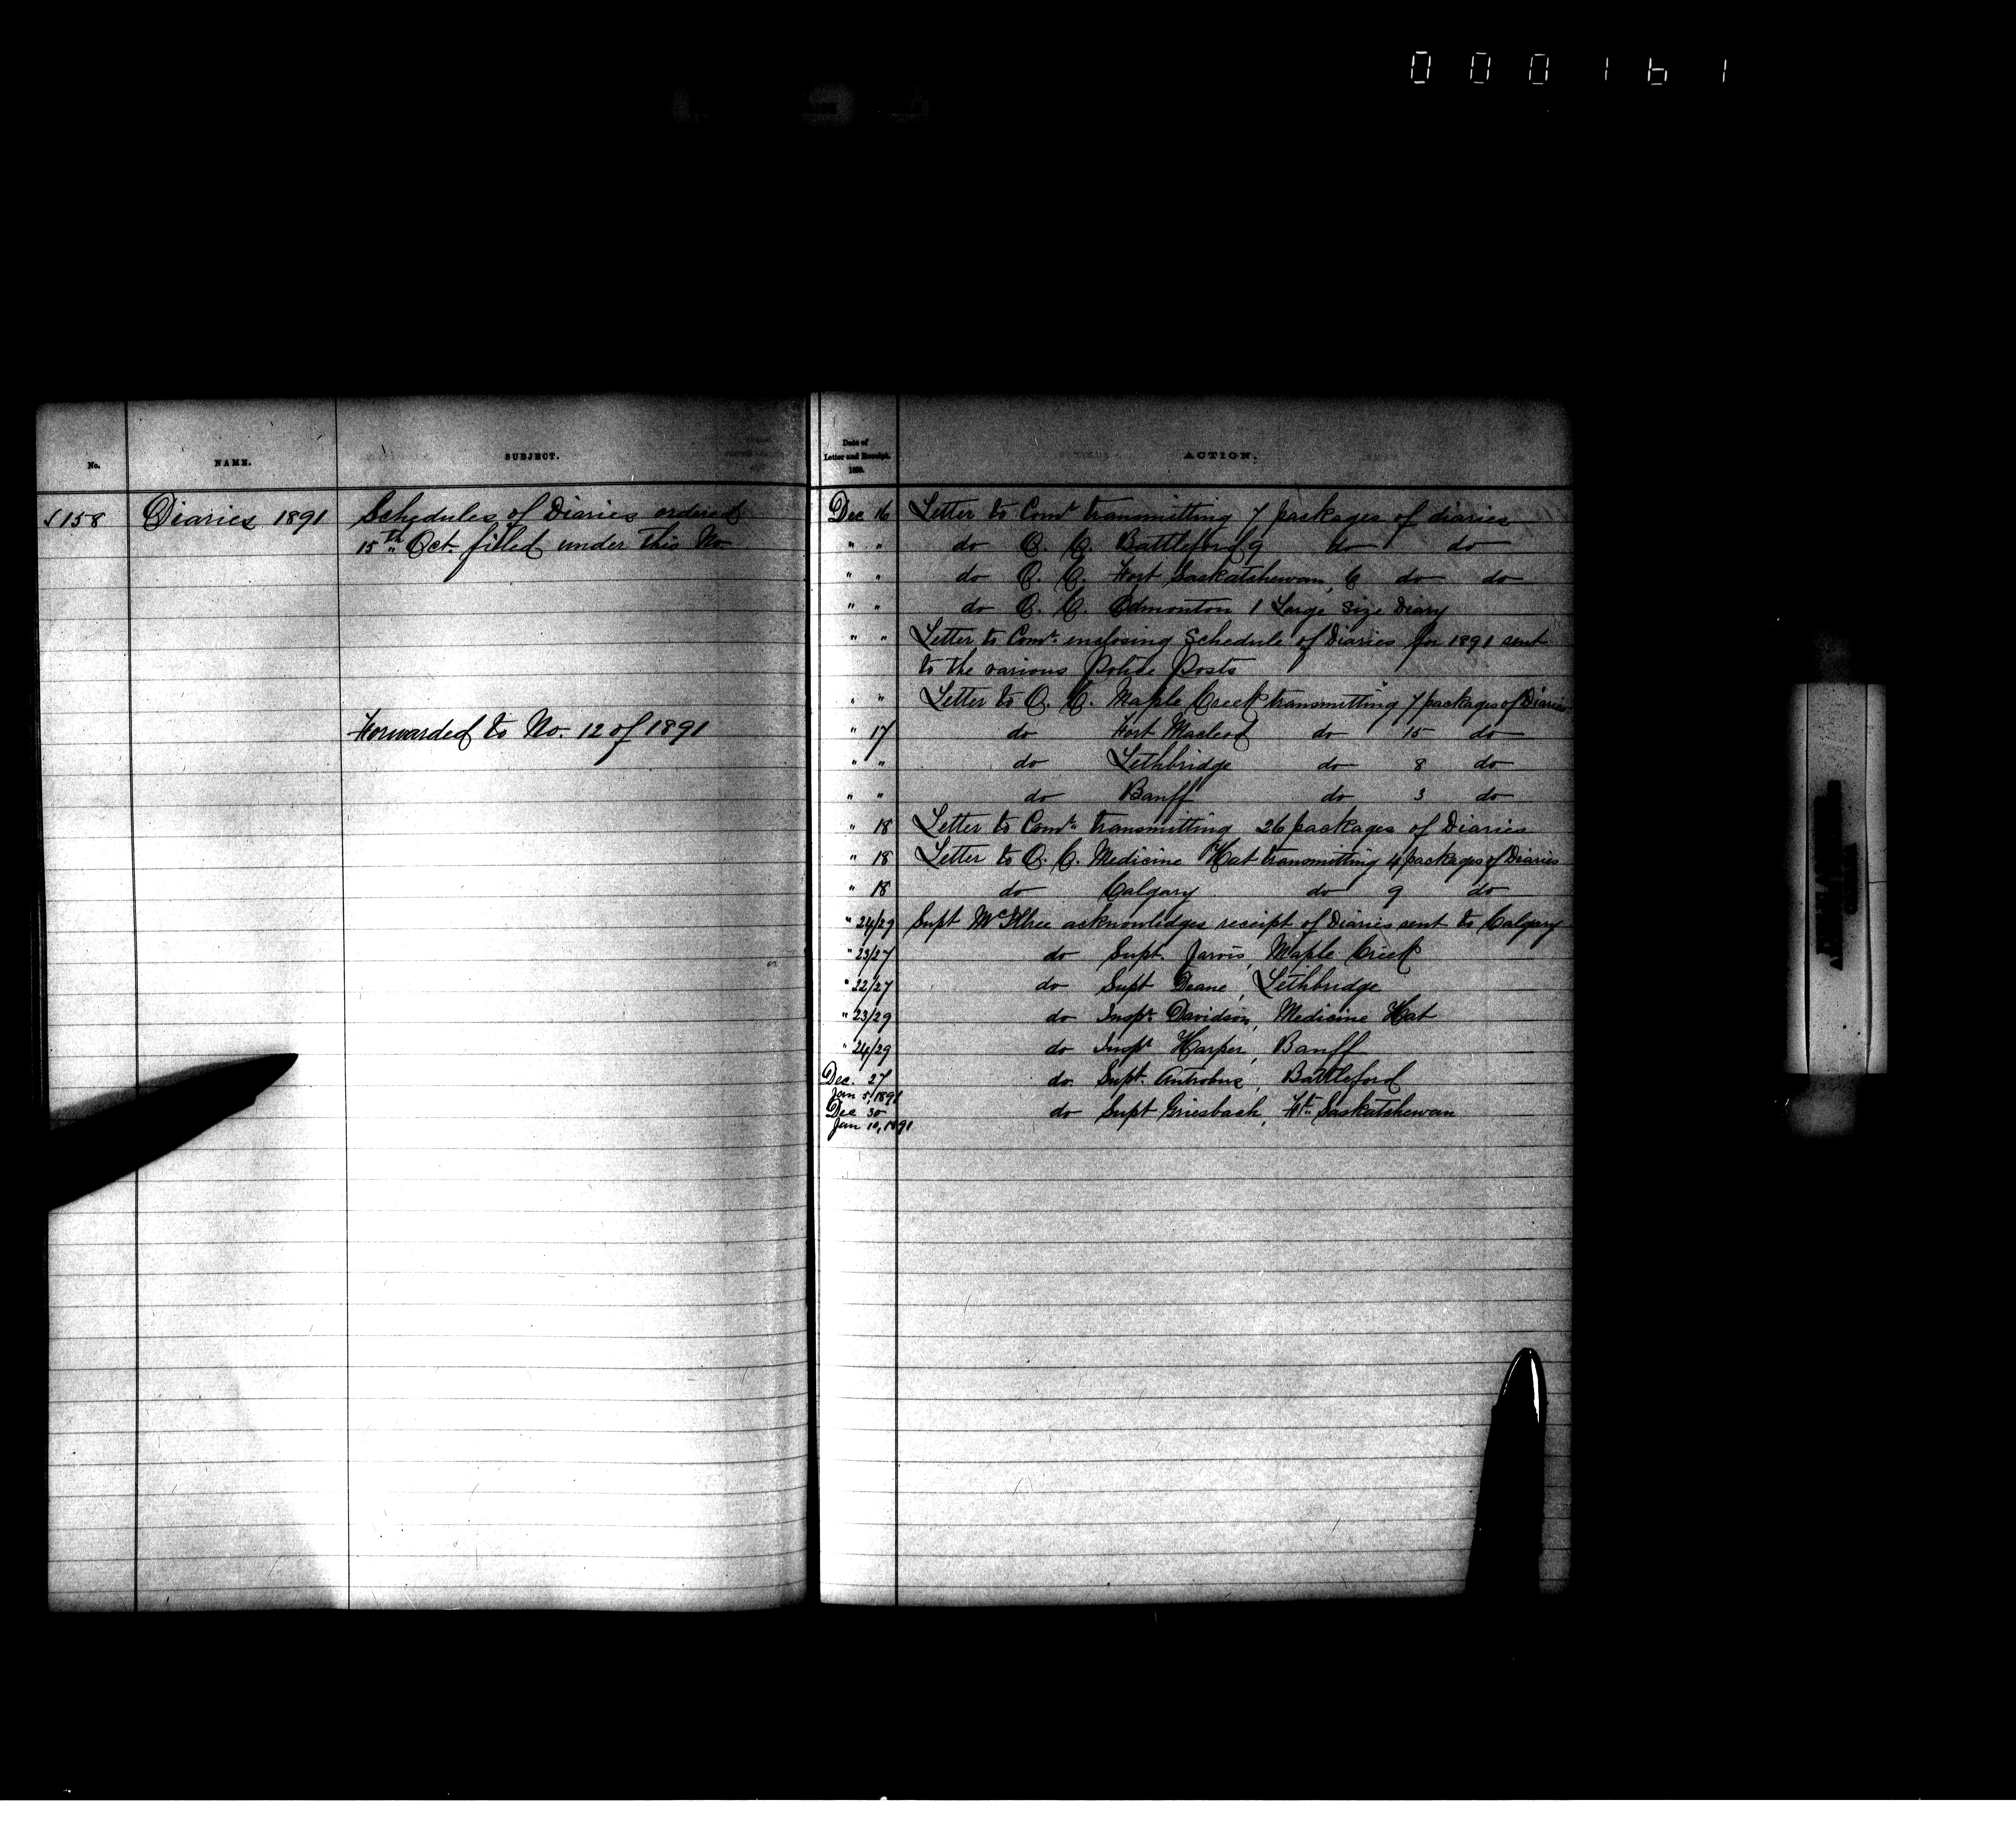 000161
No. NAME. SUBJECT.
1158 Diaries 1891 Schedules of Diaries ordered
15th Oct. filled under this No.
Forwarded to No. 12 of 1891
Date of
Letter and Receipt.
1890.
ACTION.
Dec 16 Letter to Comr transmitting 7 packages of diaries
" " do O. C. Battleford 9 do do
" " do O. C. Fort Saskatchewan, 6 do do
" " do O. C. Edmonton 1 Large size Diary
" " Letter to Comr. enclosing Schedule of Diaries for 1891 sent
to the various Police Posts
" " Letter to O. C. Maple Creek transmitting 7 packages of Diaries
" 17 do Fort Macleod do 15 do
" " do Lethbridge do 8 do
" " do Banff do 3 do
" 18 Letter to Comr. transmitting 26 packages of Diaries
" 18 Letter to O. C. Medicine Hat transmitting 4 packages of Diaries
" 18 do Calgary do 9 do
" 24/29 Supt McIllree acknowledges receipt of Diaries sent to Calgary
" 23/27 do Supt. Jarvis, Maple Creek
" 22/27 do Supt Deane, Lethbridge
" 23/29 do Inspr. Davidson, Medicine Hat
" 24/29 do Inspr Harper, Banff
Dec. 27 do Supt. Antrobus, Battleford
Jan 5, 1891
Dec 30 do Supt Griesbach, Ft. Saskatchewan
Jan 10, 1891